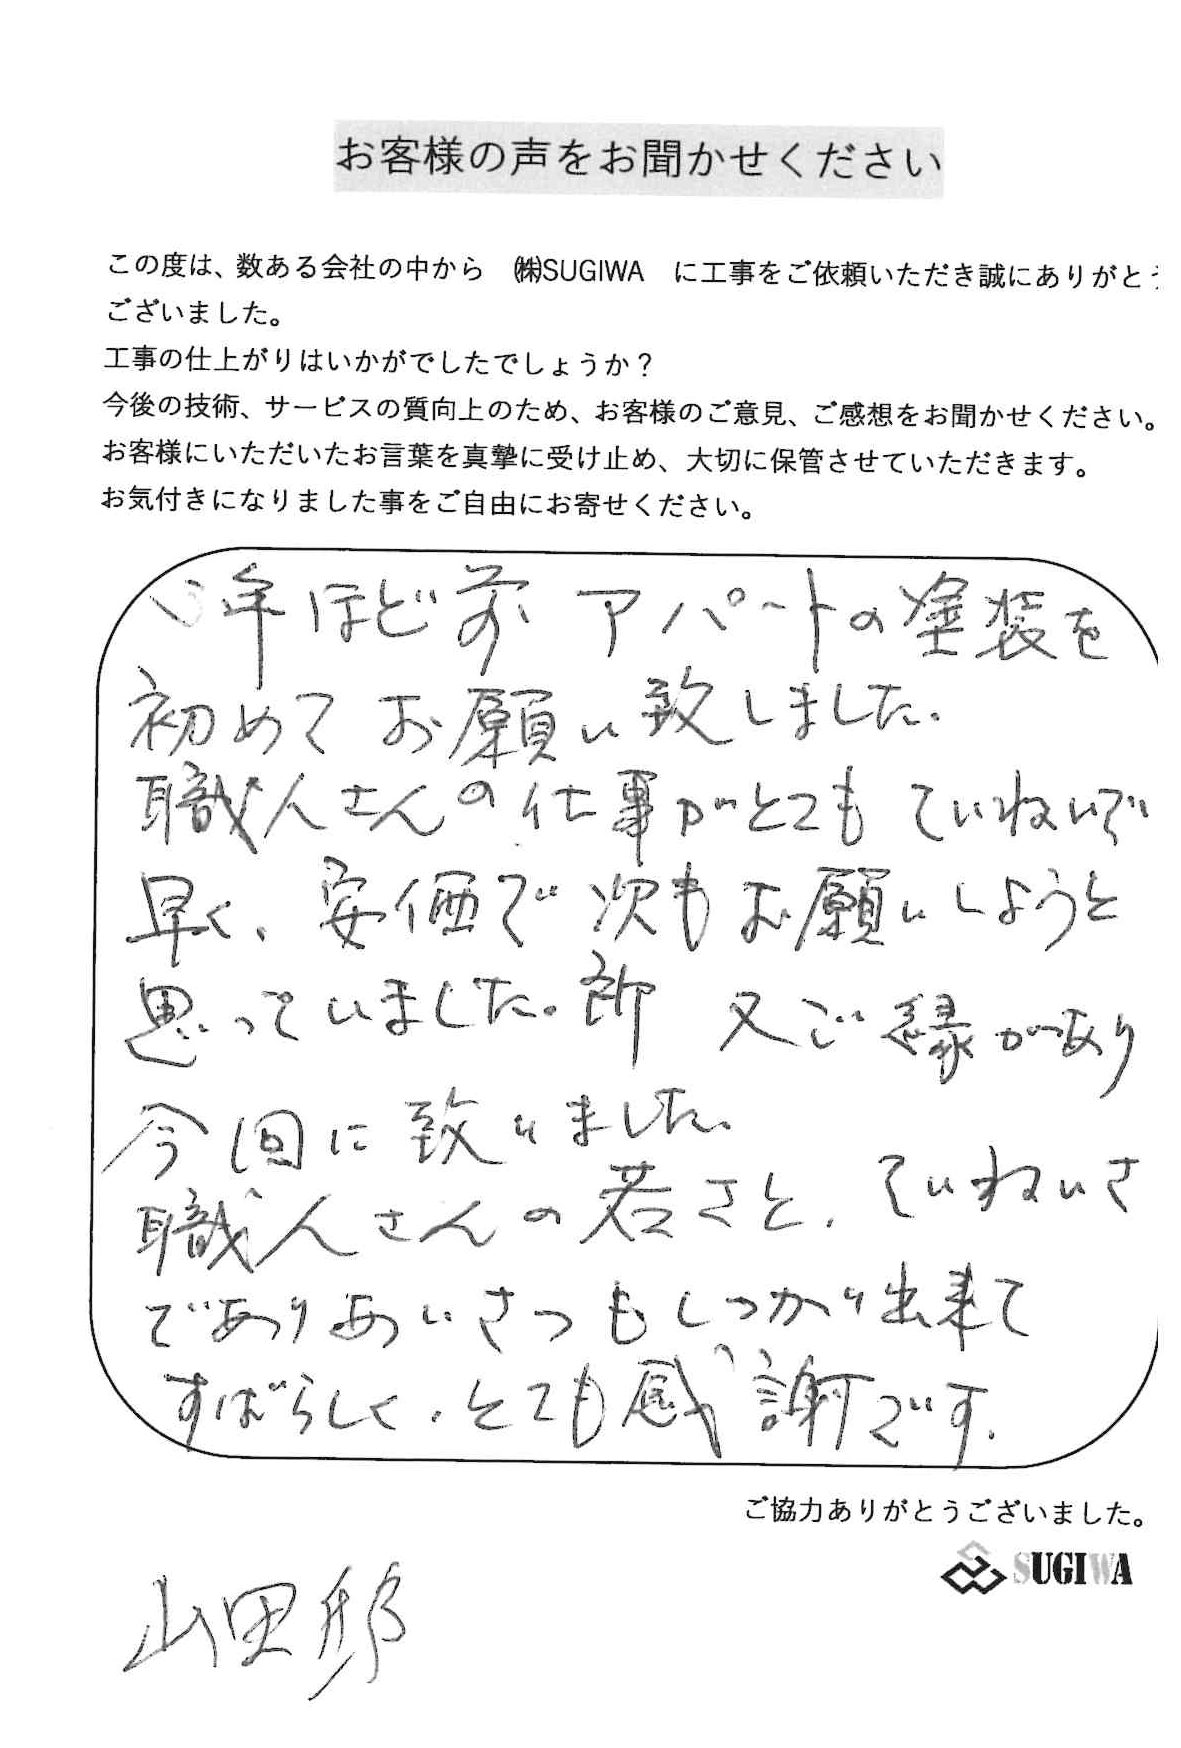 お客様の声をお聞かせください
この度は、数ある会社の中から ㈱SUGIWA に工事をご依頼いただき誠にありがとう
ございました。
工事の仕上がりはいかがでしたでしょうか？
今後の技術、サービスの質向上のため、お客様のご意見、ご感想をお聞かせください。
お客様にいただいたお言葉を真摯に受け止め、大切に保管させていただきます。
お気付きになりました事をご自由にお寄せください。
年ほど前 アパートの塗装を
初めてお願い致しました。
職人さんの仕事がとてもていねいで
早く、安価で次もお願いしようと
思っていました。 又ご縁があり
今回に致りました。
職人さんの若さと、ていねいさ
でありあいさつもしっかり出来て
すばらしく、とても感謝です。
ご協力ありがとうございました。
SUGIWA
山田邸